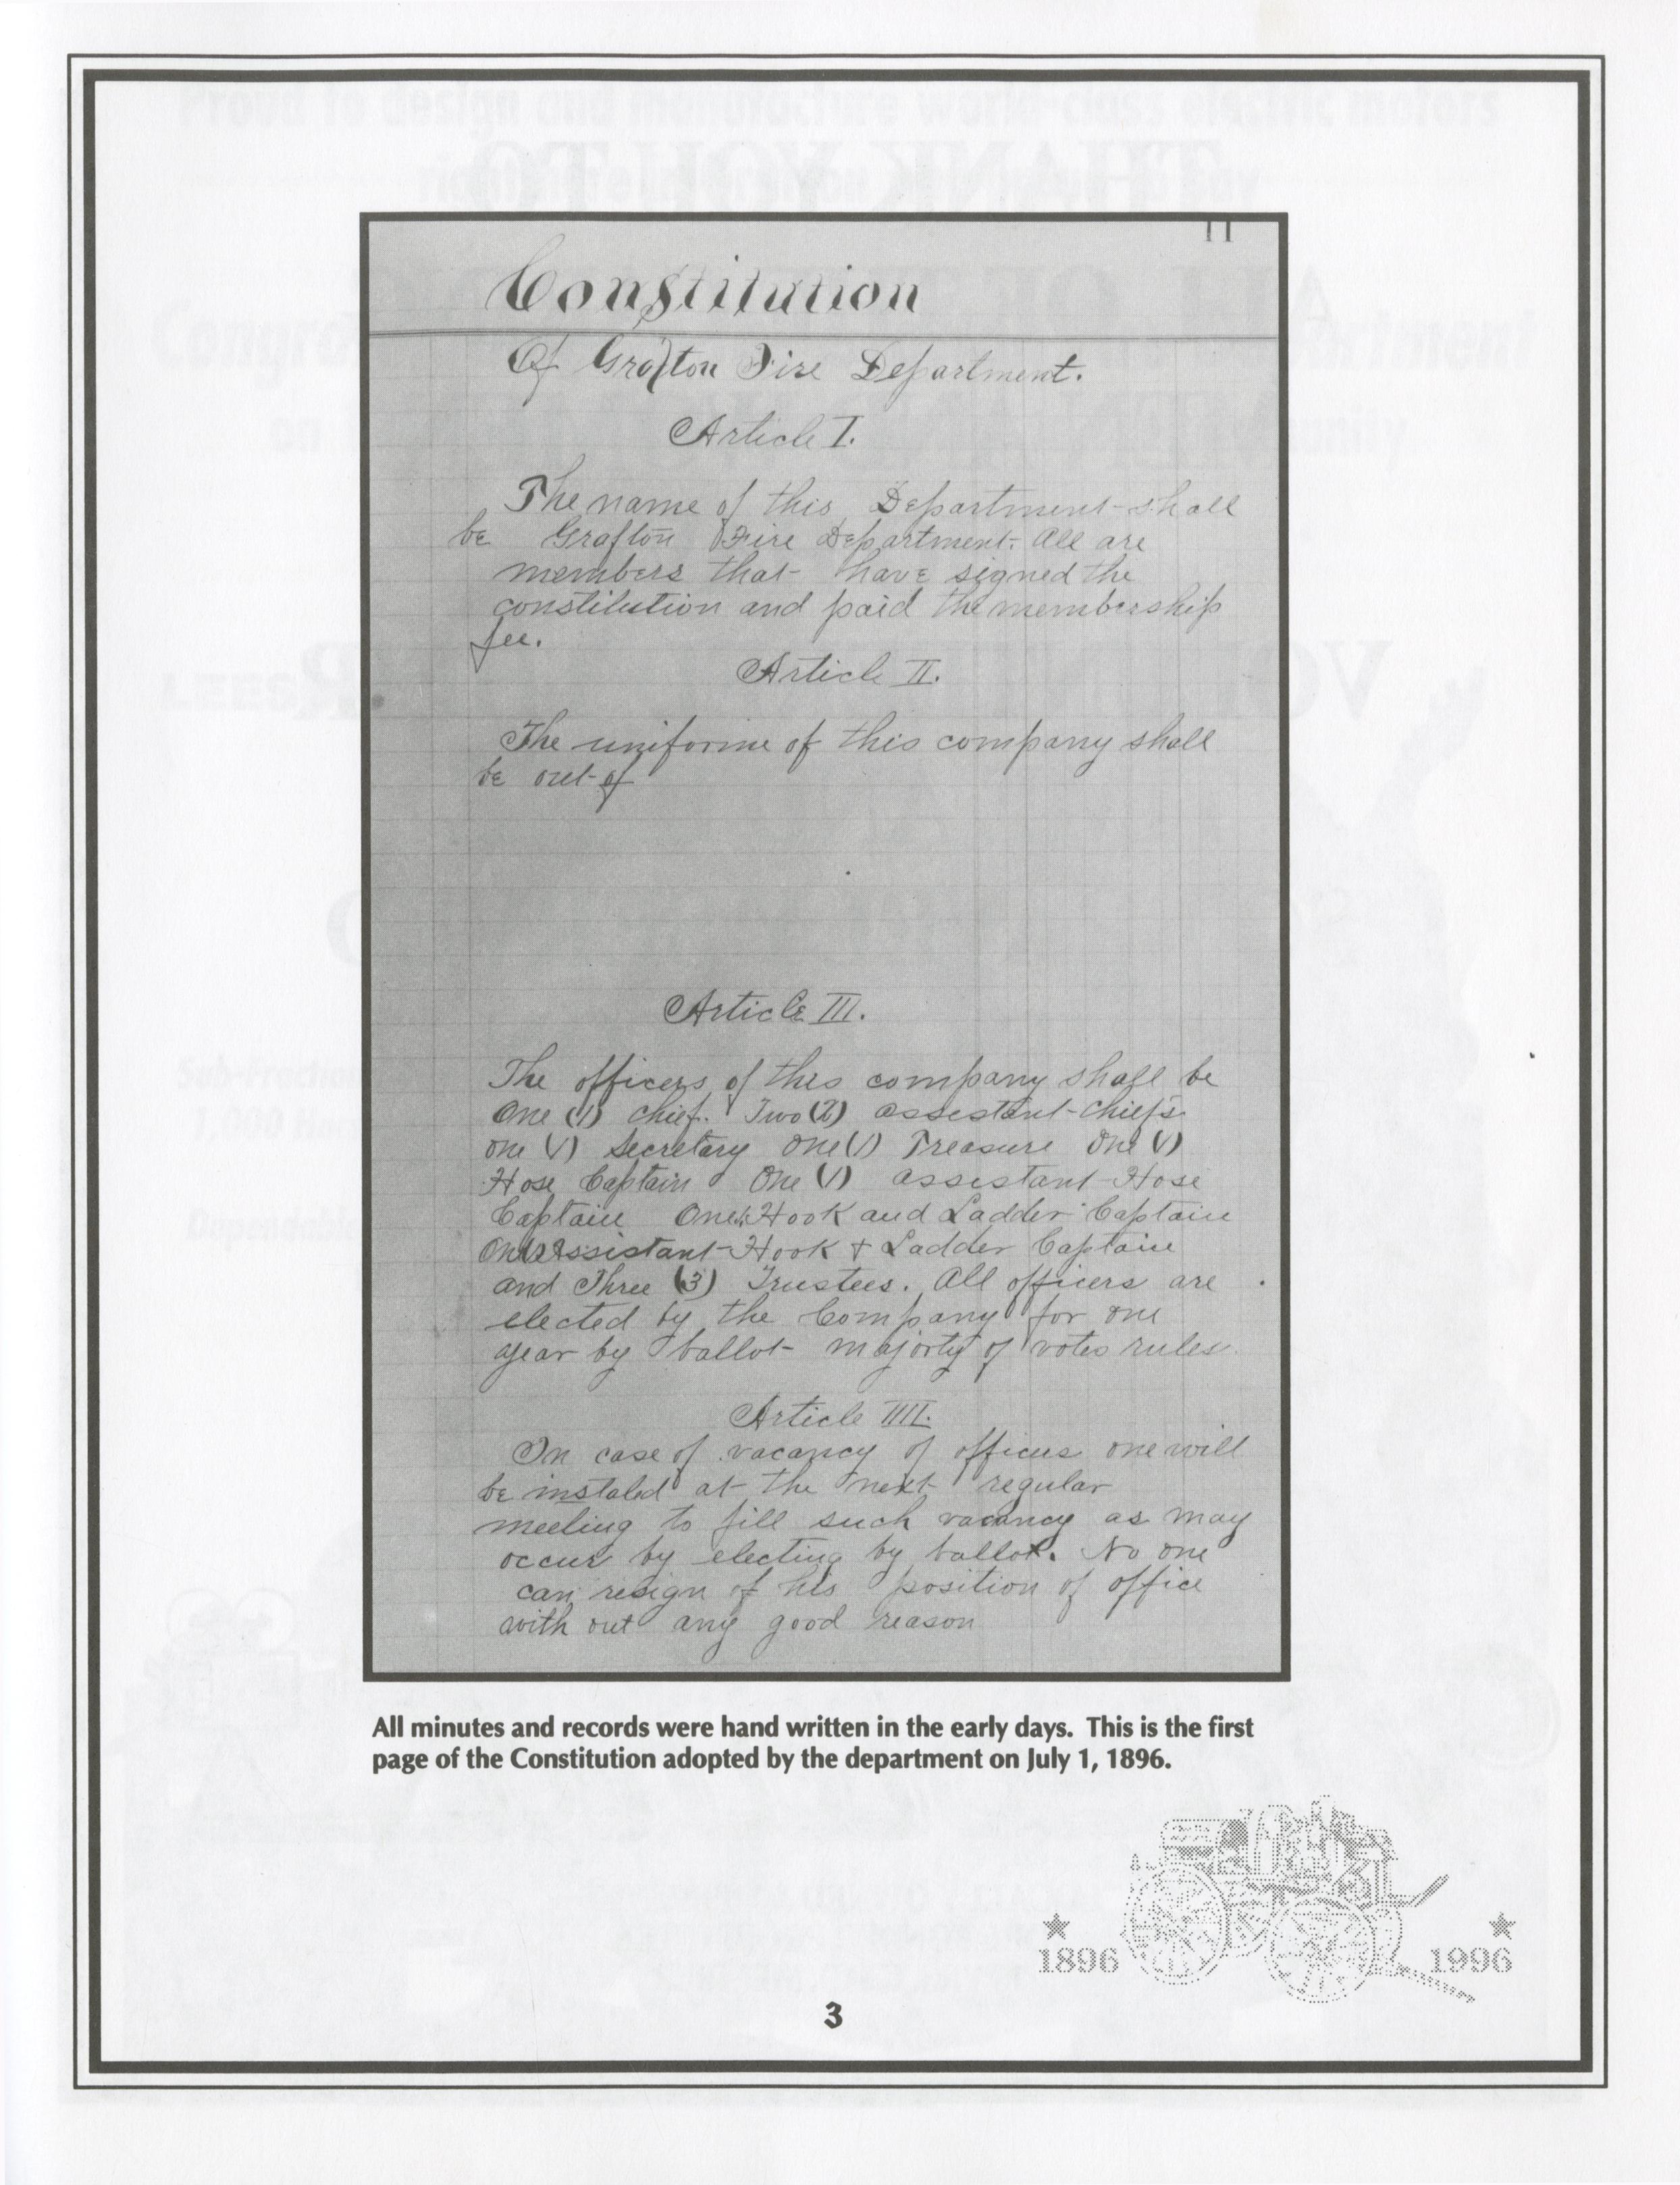 11
Constitution
Of Grafton Fire Department.
Article I.
The name of this Department shall
be Grafton Fire Department. All are
members that have signed the
constitution and paid the membership
fee.
Article II.
The uniforme of this company shall
be out of
Article III.
The officers of this company shall be
One (1) chief. Two (2) assestant Chiefs
one (1) Secretary One (1) Treasure One (1)
Hose Captain One (1) assestant Hose
Captain One Hook and Ladder Captain
One assistant Hook & Ladder Captain
and Three (3) Trustees. All officers are
elected by the Company for one
year by ballot majorty of votes rules.
Article IIII.
In case of vacancy of offices one will
be instaled at the next regular
meeting to fill such vacancy as may
occur by electing by ballot. No one
can resign of his position of office
with out any good reason
All minutes and records were hand written in the early days. This is the first
page of the Constitution adopted by the department on July 1, 1896.
1896 1996
3